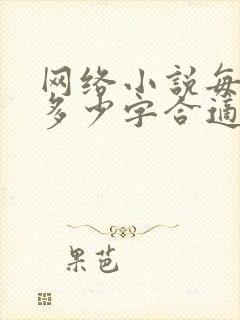 网络小说每
多少字合适
果芭